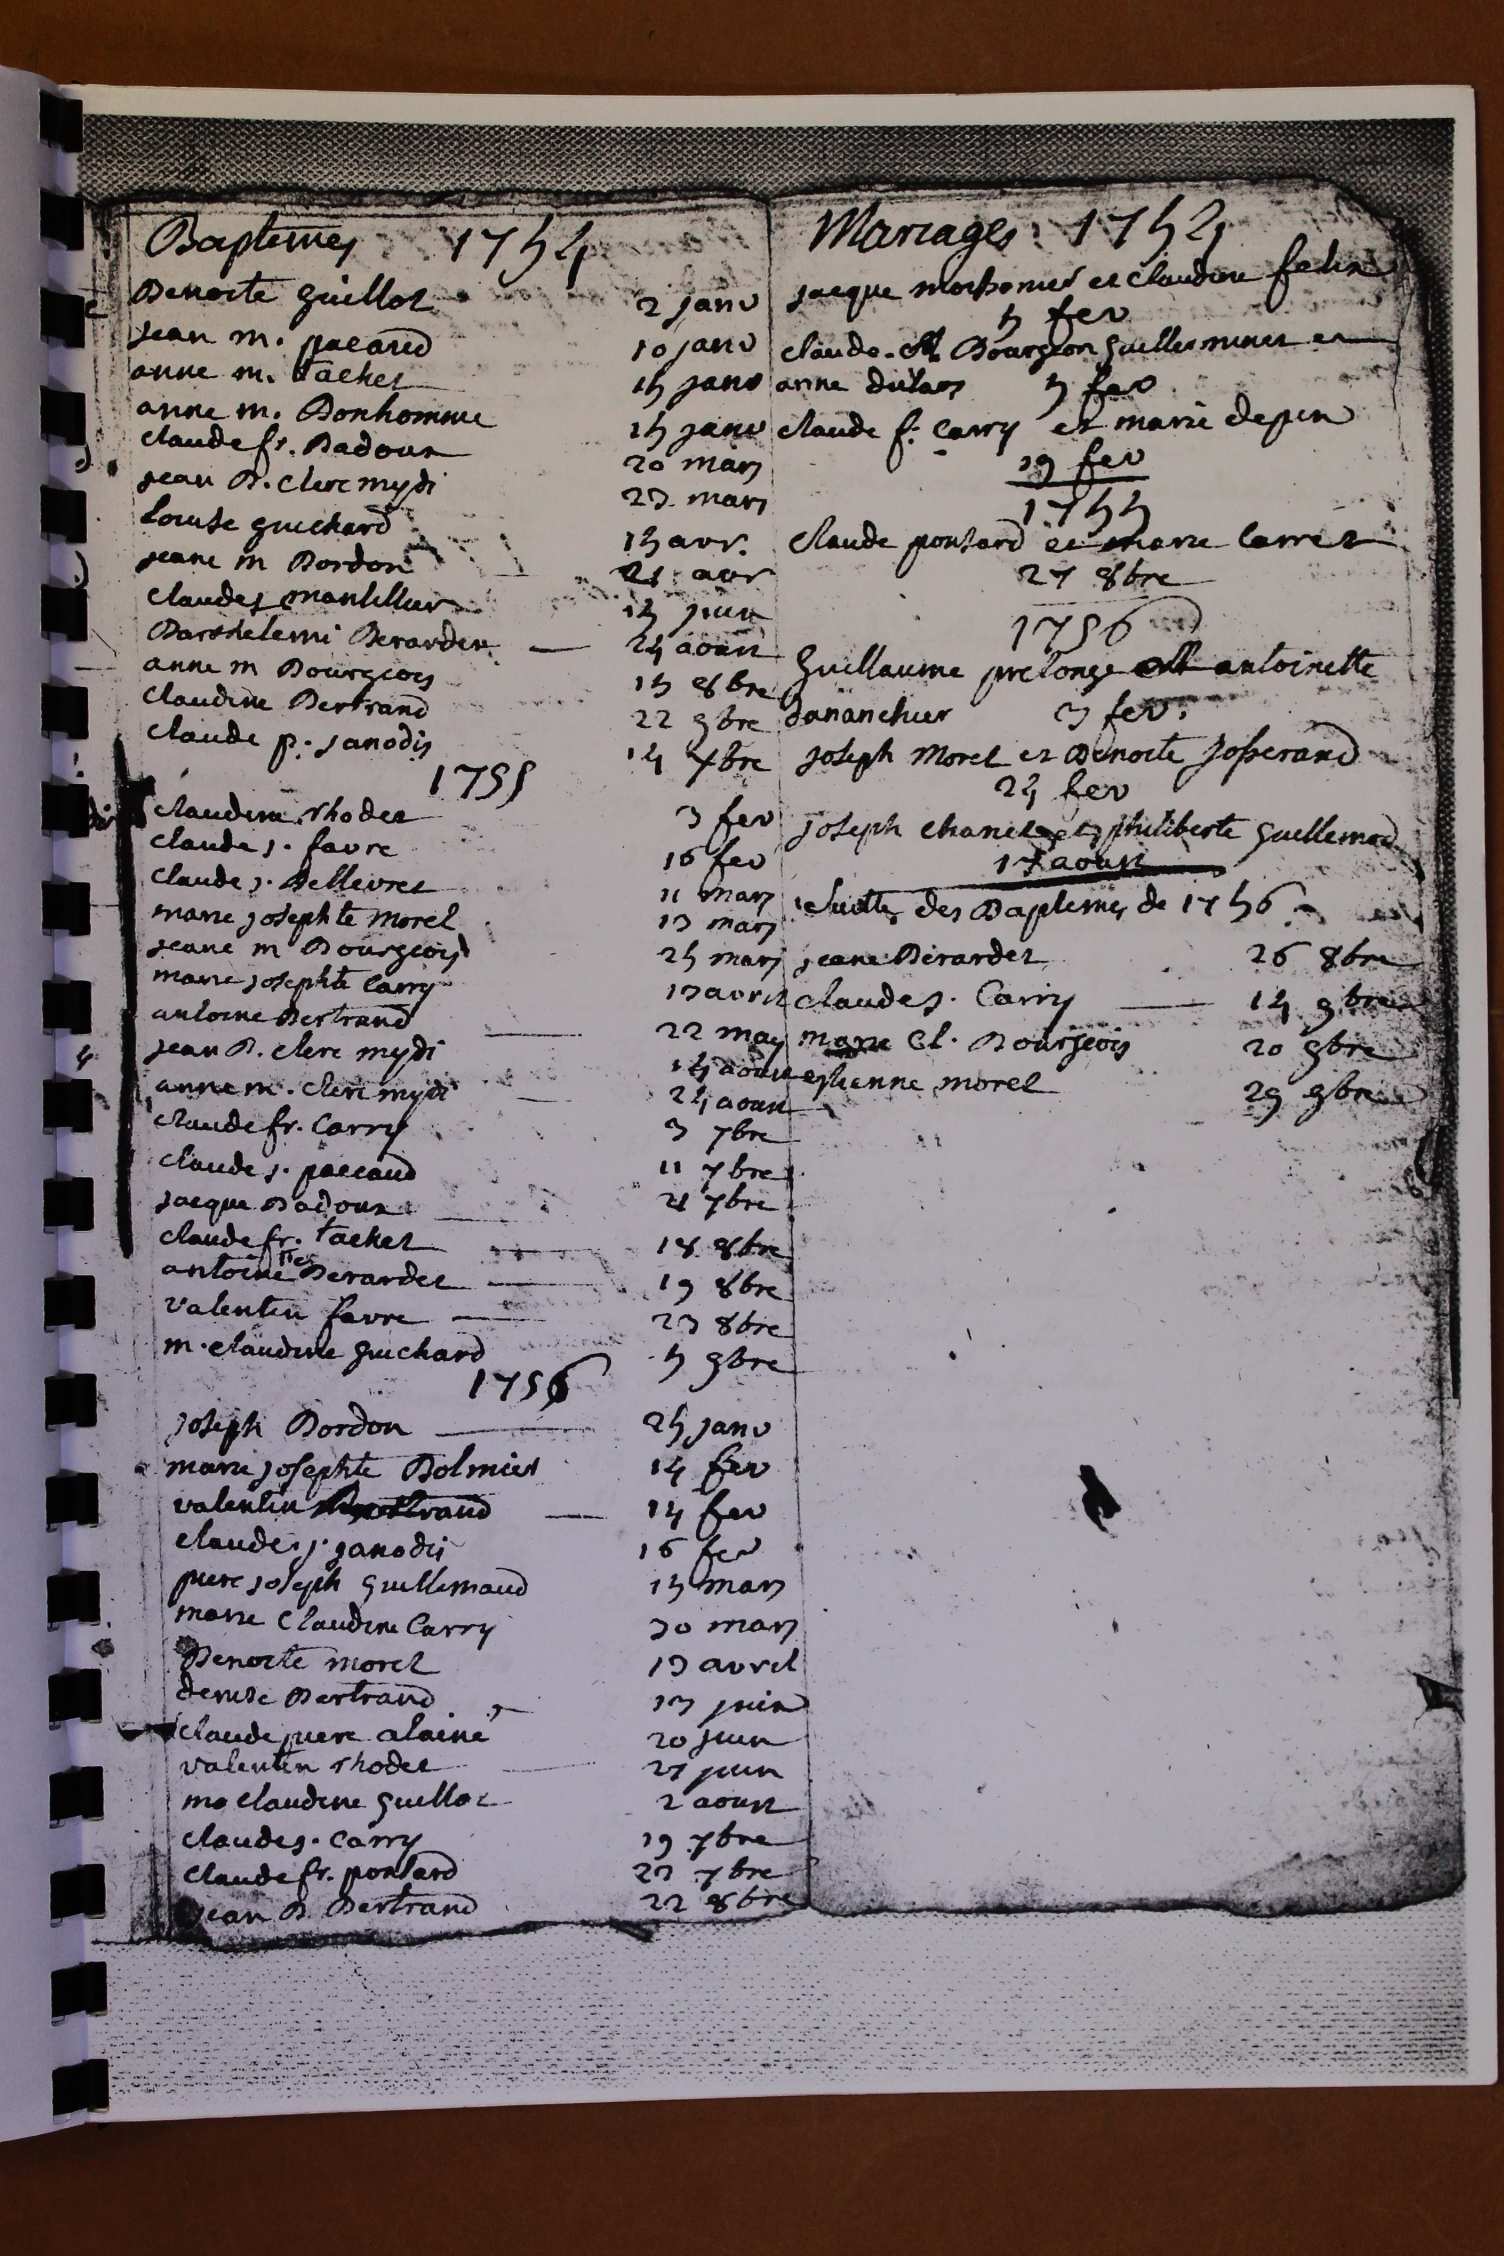 Baptemes 1754
Benoite Guillot 2 janv
jean m. pacaud 10 janv
anne m. tachet 15 janv
anne m. Bonhomme 15 janv
claude fr. Badoux 20 mars
jean B. clerc mydi 23 mars
Louise guichard 15 avr.
jeane m Bordon 21 avr
claude j. mantillier 15 juin
Barthelemi Berardet 24 aoust
anne m Bourgeois 15 8bre
claudine Bertrand 22 9bre
claude p. janodis 14 xbre
1755
claudine rhodet 3 fev
claude j. favre 16 fev
claude j. Bellevret 11 mars
marie josephte morel 13 mars
jeane m Bourgeois 25 mars
marie josephte Carry 13 avril
antoine Bertrand 22 may
jean B. clerc mydi 14 aoust
anne m. clerc mydi 24 aoust
claude fr. Carry 3 7bre
claude j. paccaud 11 7bre
jacque Badoux 21 7bre
claude fr. tachet 18 8bre
antoinette Berardet 19 8bre
valentin favre 23 8bre
m. claudine guichard 5 9bre
1756
joseph Bordon 25 janv
marie josephte Bolmier 14 fev
valentin Bertrand 14 fev
claude j. janodis 16 fev
piere joseph guillemaud 15 mars
marie claudine Carry 30 mars
Benoite morel 13 avril
denise Bertrand 13 juin
claude piere alainé 20 juin
valentin rhodet 27 juin
ma claudine guillot 2 aoust
claude j. carry 19 7bre
claude fr. ponsard 23 7bre
jean B Bertrand 22 8bre
Mariages 1754
jacque et claudine felix
5 fev
claude. Bourgeon guilleminet et
anne dulars 5 fev
claude f. Carry et marie depin
19 fev
1755
claude ponsard et marie Carret
27 8bre
1756
Guillaume prelonge antoinette
dananchier 3 fev.
joseph Morel et Benoite josserand
24 fev
joseph chanel et philiberte guillemaud
17 aoust
suitte des Baptemes de 1756
jeane Berardet 26 8bre
claude j. Carry 14 9bre
marie Cl. Bourgeois 20 9bre
estienne morel 29 9bre